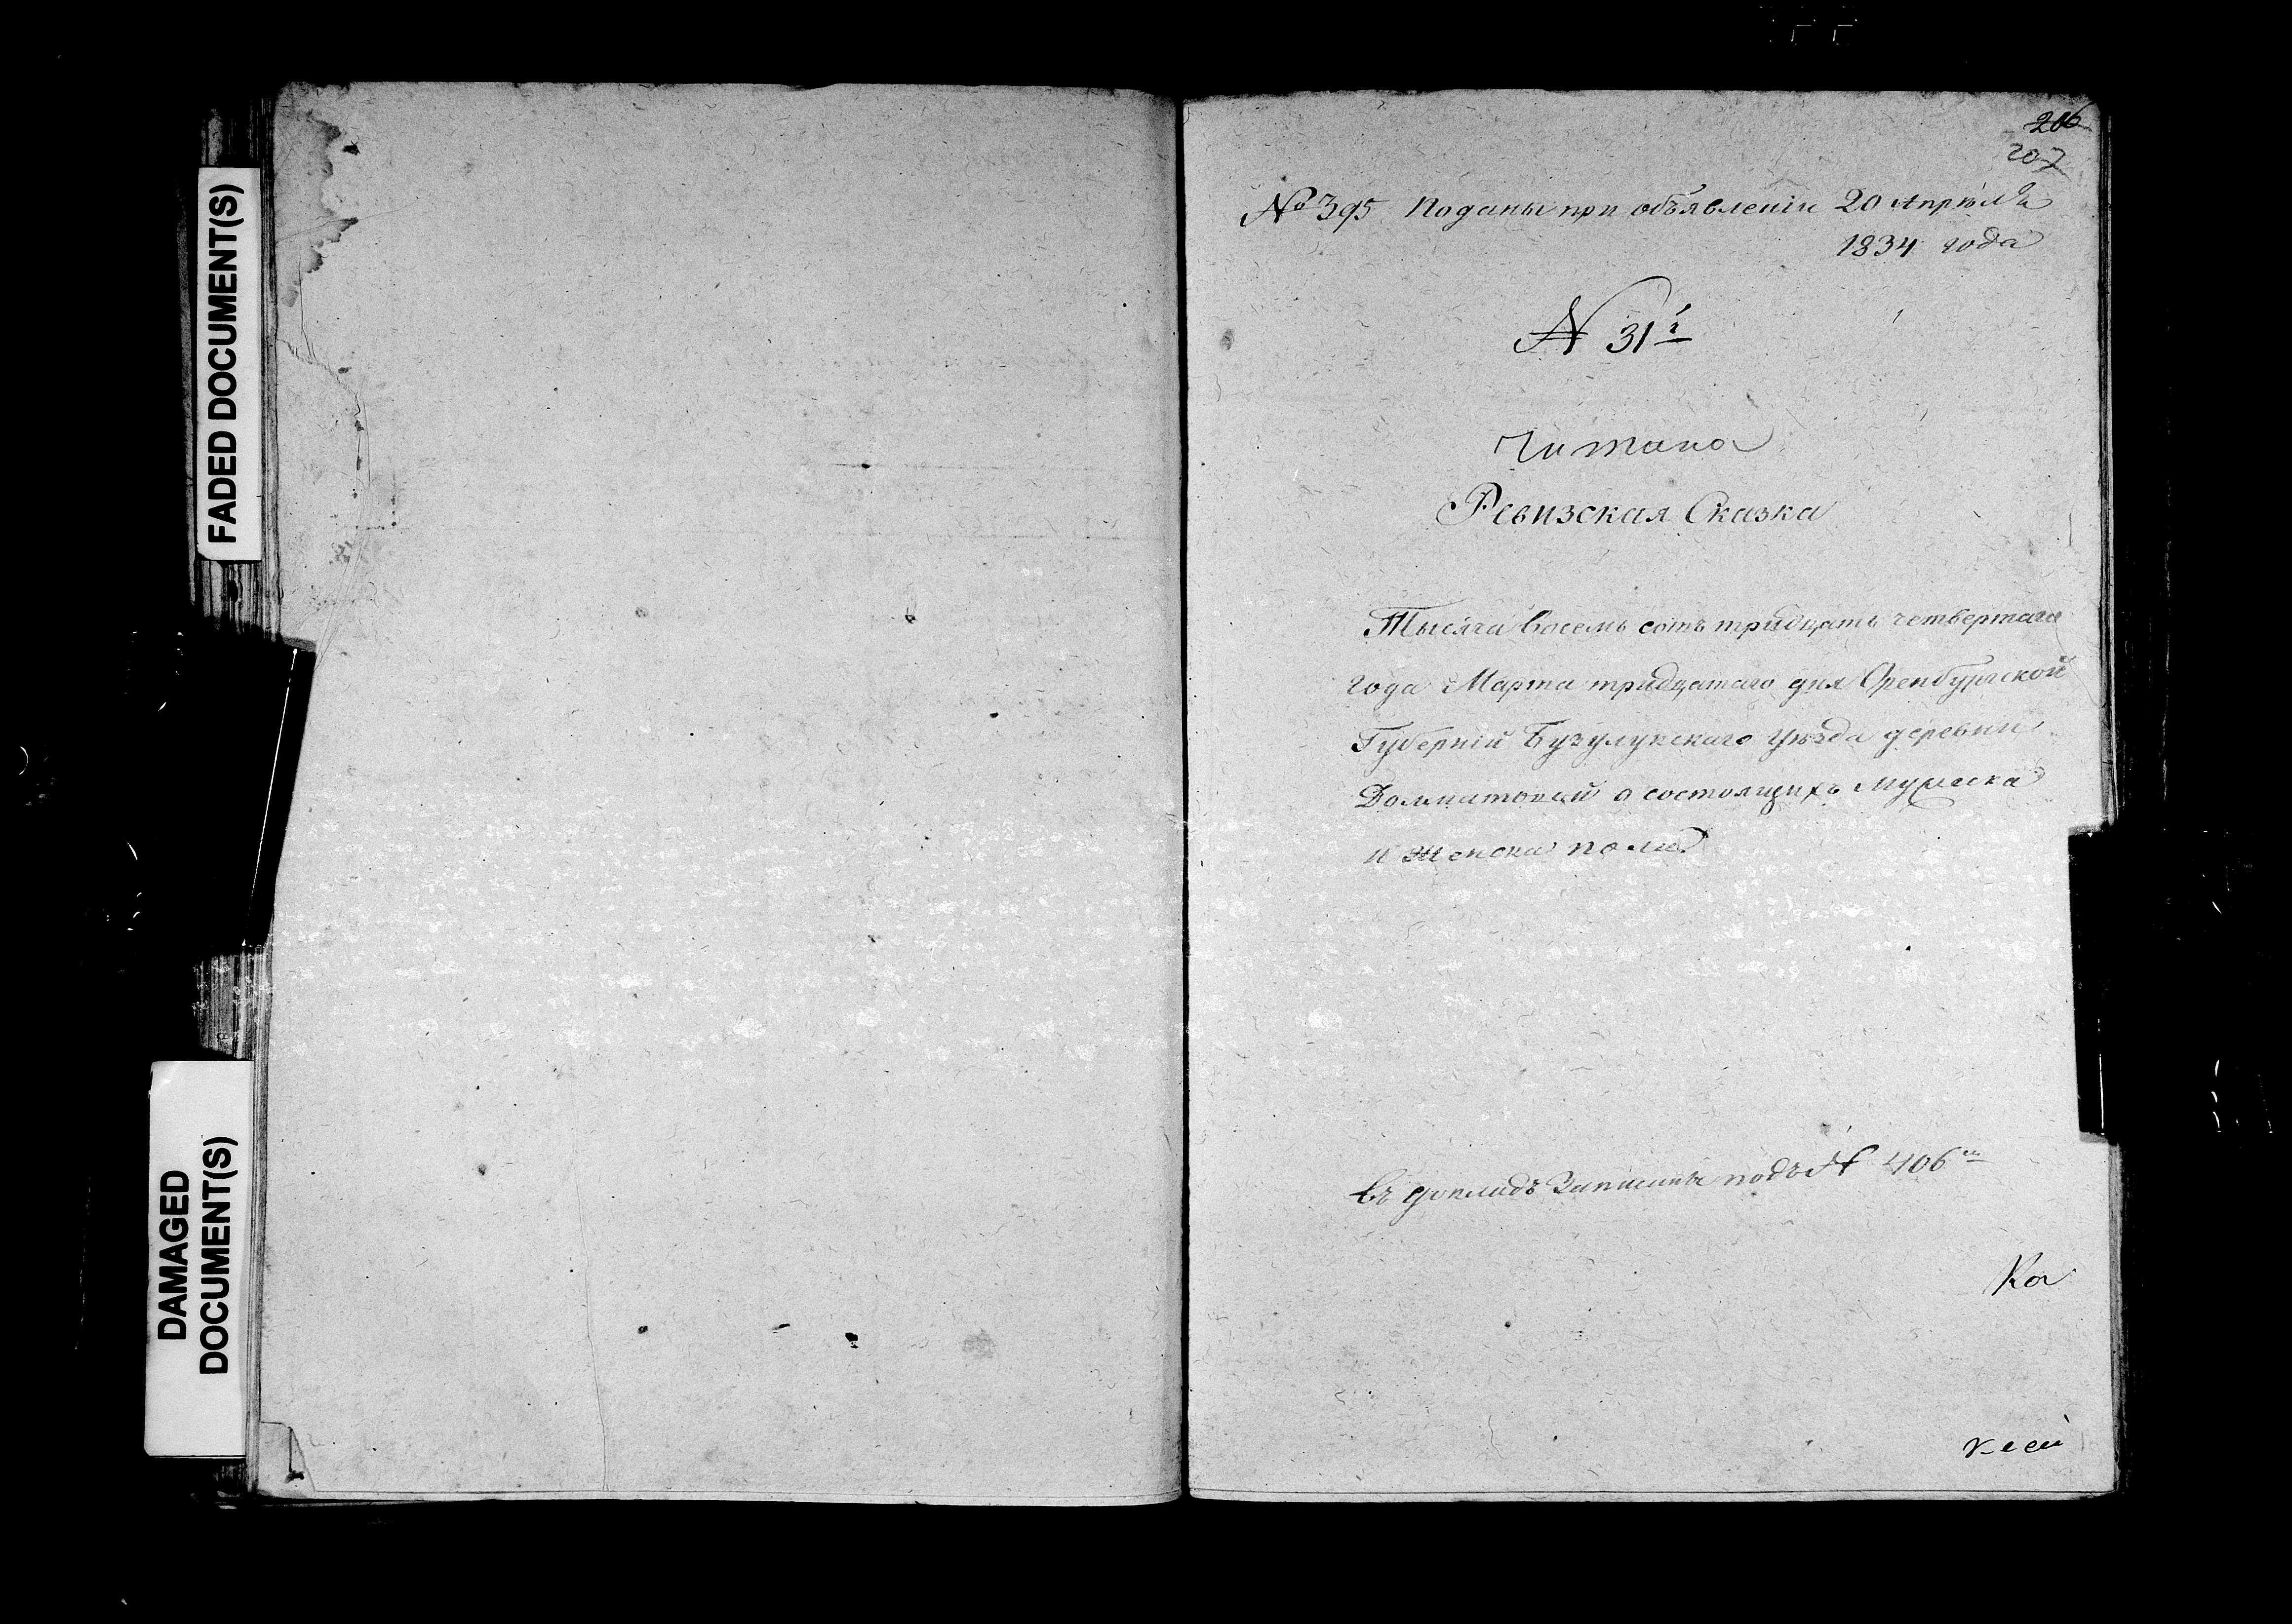 FADED DOCUMENT(S)
DAMAGED
DOCUMENT(S)
206
207
№ 395 Поданы при объявленiи 20 Апрѣля
1834 года
N 31й
Читано
Ревизская Сказка
Тысяча восемь сотъ тридцать четвертаго
года Марта тридцатаго дня Оренбургской
Губернiи Бузулукскаго уѣзда деревни
Долматовой о состоящихъ мужеска
и женска пола
Въ докладъ Записаны подъ N 406
Ка